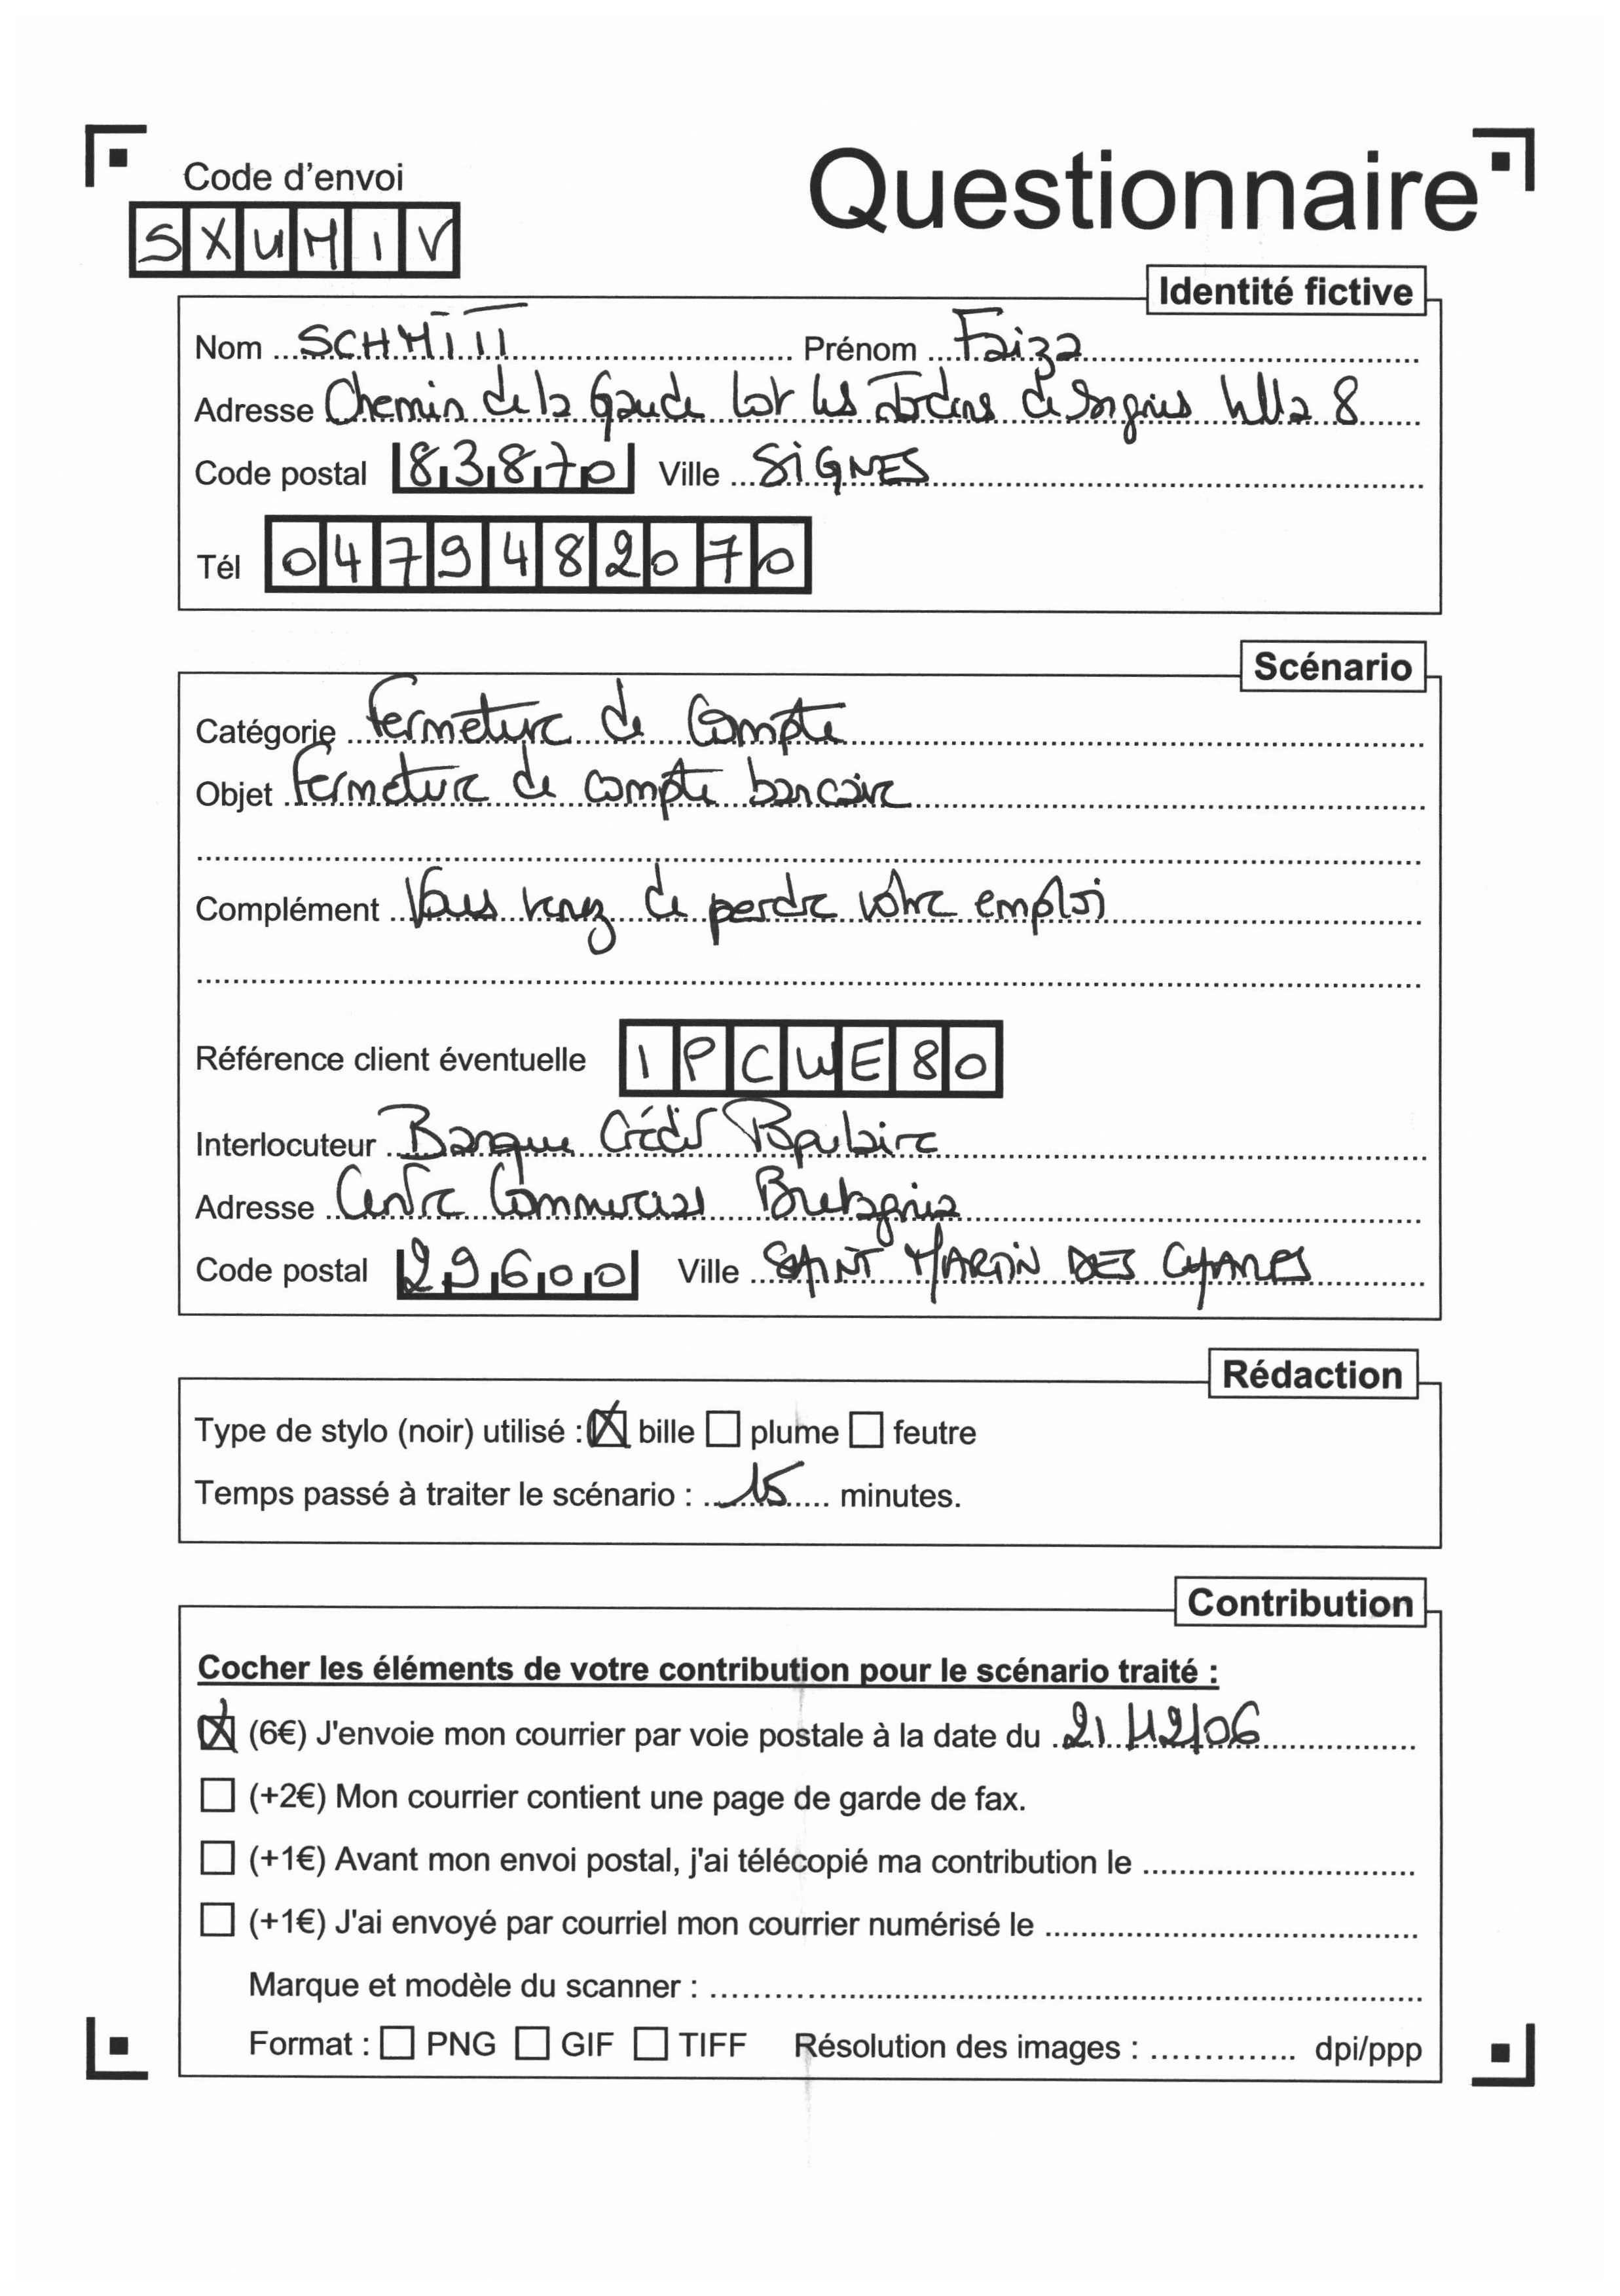 Code d'envoi
Questionnaire
SXUMIV
Identité fictive
Nom SCHMITT Prénom Faiza
Adresse Chemin de la Gaude Lot les Jardins de Signes Villa 8
Code postal 83870 Ville SIGNES
Tél 0479482070
Scénario
Catégorie Fermeture de Compte
Objet Fermeture de compte bancaire
Complément Vous venez de perdre votre emploi
Référence client éventuelle IPCWE80
Interlocuteur Banque Crédit Populaire
Adresse Centre Commercial Bretagnia
Code postal 29600 Ville SAINT MARTIN DES CHAMPS
Rédaction
Type de stylo (noir) utilisé : bille plume feutre
Temps passé à traiter le scénario : 15 minutes.
Contribution
Cocher les éléments de votre contribution pour le scénario traité :
(6€) J'envoie mon courrier par voie postale à la date du 21/12/06
(+2€) Mon courrier contient une page de garde de fax.
(+1€) Avant mon envoi postal, j'ai télécopié ma contribution le
(+1€) J'ai envoyé par courriel mon courrier numérisé le
Marque et modèle du scanner :
Format : PNG GIF TIFF Résolution des images : dpi/ppp